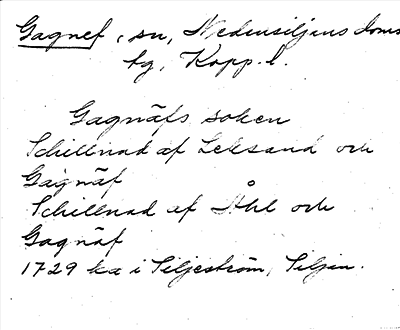 Gagnef, sn, Nedansiljans doms
tg, Kopp.l.
Gagnäfs soken
Schillnad af Leksand och
Gagnäf
Schillnad af Åhl och
Gagnäf
1729 ka i Siljeström, Siljan.